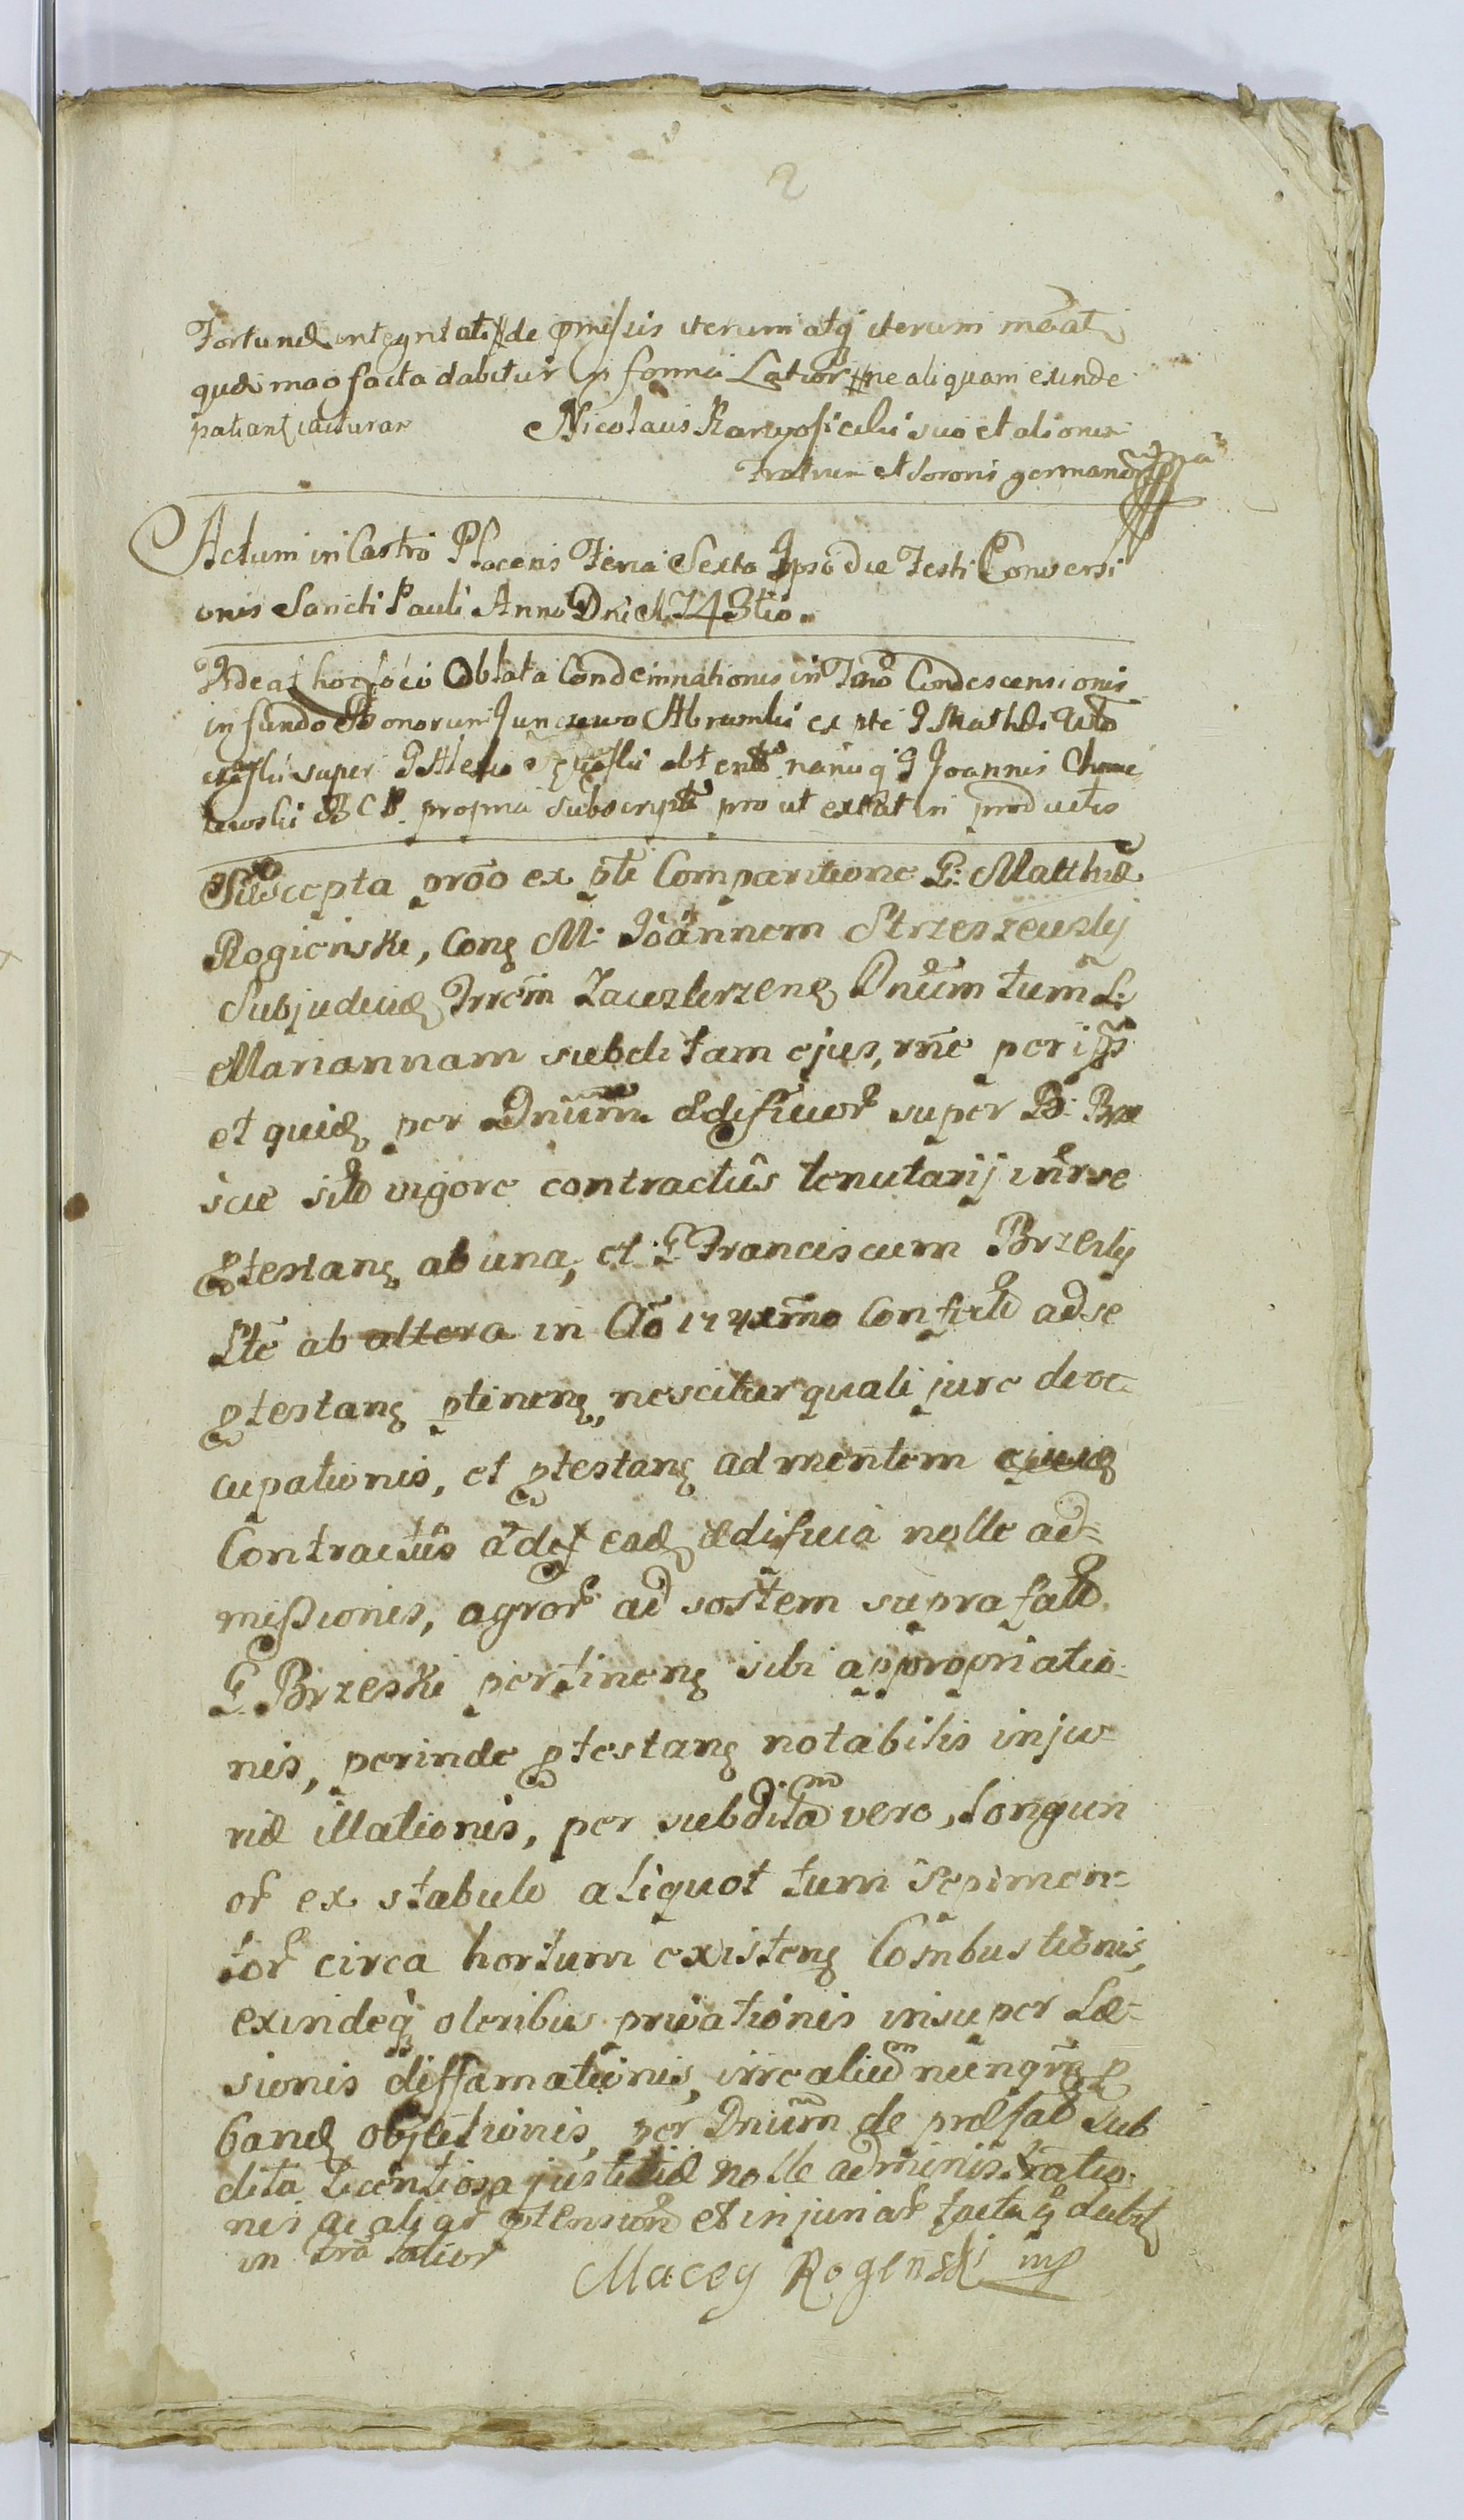 2
Fortunæ integritati de pmissis iterum atq iterum
quæ mag facta dabitur in forma Latiori ne aliquam exinde
patiant iacturam Nicolaus suo et aliorum
Fratrum et Sororis germanor
Actum in Castro Plocens Feria Sexta Ipso die Festi Conversi
onis Sancti Pauli Anno Dni M743tio.
hoc loco Oblata Condemnationis in Tno Condescensionis
in fundo Bonorum Juncewo Abramki ex pte G Mathæi
super G manuq G Joannis
lewski B C P. propria subscript pro ut extat in productis
Suscepta prõo ex pte Comparitione G: Matthiæ
Rogienski, Cong M: Joannem Strzeszewskj
Subjudicē Trrem Zawskrzenē Dnum tum L:
Mariannam subditam ejus, rñe per
et quid per Dnum ædificior super B: Brze
scie sito vigore contractûs tenutarij inr se
ptestang ab una, et G Franciscum Brzeskj
Pte ab altera in Aõ 1741mo Confecto ad se
ptestang ptineng, nescitur quali jure de oc-
cupationis, et ptestang ad mentem ejusd
Contractûs ad ead ædificia nolle ad-
missionis, agror ad sortem supra fato
G. Brzeski pertineng sibi appropriatio-
nis, perinde ptestang notabilis inju-
riæ illationis, per subditam vero, longuri
or ex stabulo aliquot tum sepimen-
tor circa hortum existeng Combustionis,
exindeq oleribus privationis insuper Læ-
sionis diffamationis, nunqm p
band objectionis, per Dnum de præfat sub
dita licentiosa justitiæ nolle administratio-
nis ac aliar ptension et injuriar facta q dabit
in frã latior Macey Rogenski mp